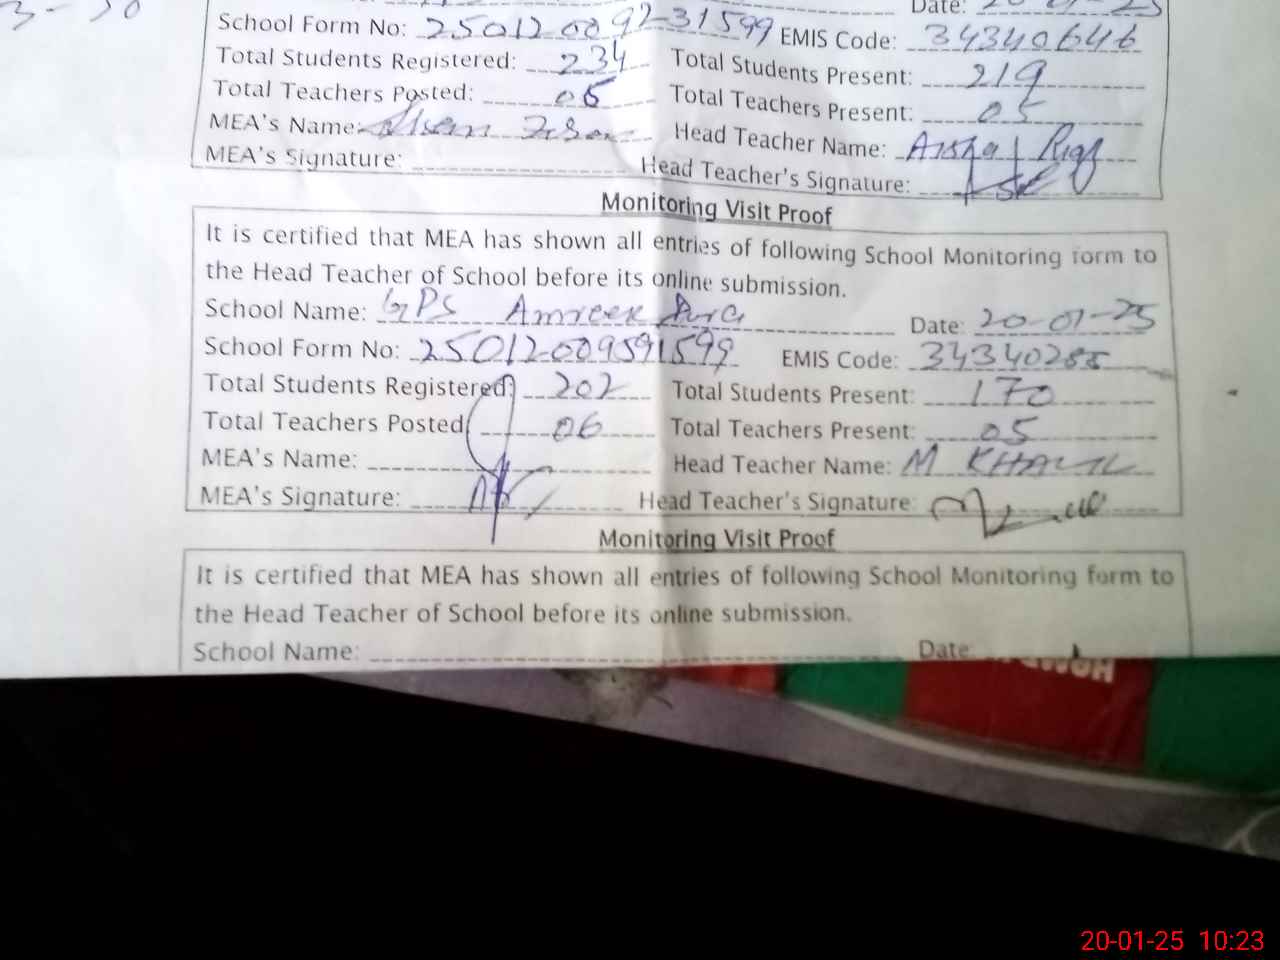 Date: 20-01-25
School Form No: 25012009231599 EMIS Code: 34340646
Total Students Registered: 234 Total Students Present: 219
Total Teachers Posted: 05 Total Teachers Present: 05
MEA's Name: Head Teacher Name:
MEA's Signature: Head Teacher's Signature:
Monitoring Visit Proof
It is certified that MEA has shown all entries of following School Monitoring form to
the Head Teacher of School before its online submission.
School Name: GPS Date: 20-01-25
School Form No: 25012009591599 EMIS Code: 34340285
Total Students Registered: 202 Total Students Present: 170
Total Teachers Posted: 06 Total Teachers Present: 05
MEA's Name: Head Teacher Name: M KHALIL
MEA's Signature: Head Teacher's Signature:
Monitoring Visit Proof
It is certified that MEA has shown all entries of following School Monitoring form to
the Head Teacher of School before its online submission.
School Name: Date:
20-01-25 10:23